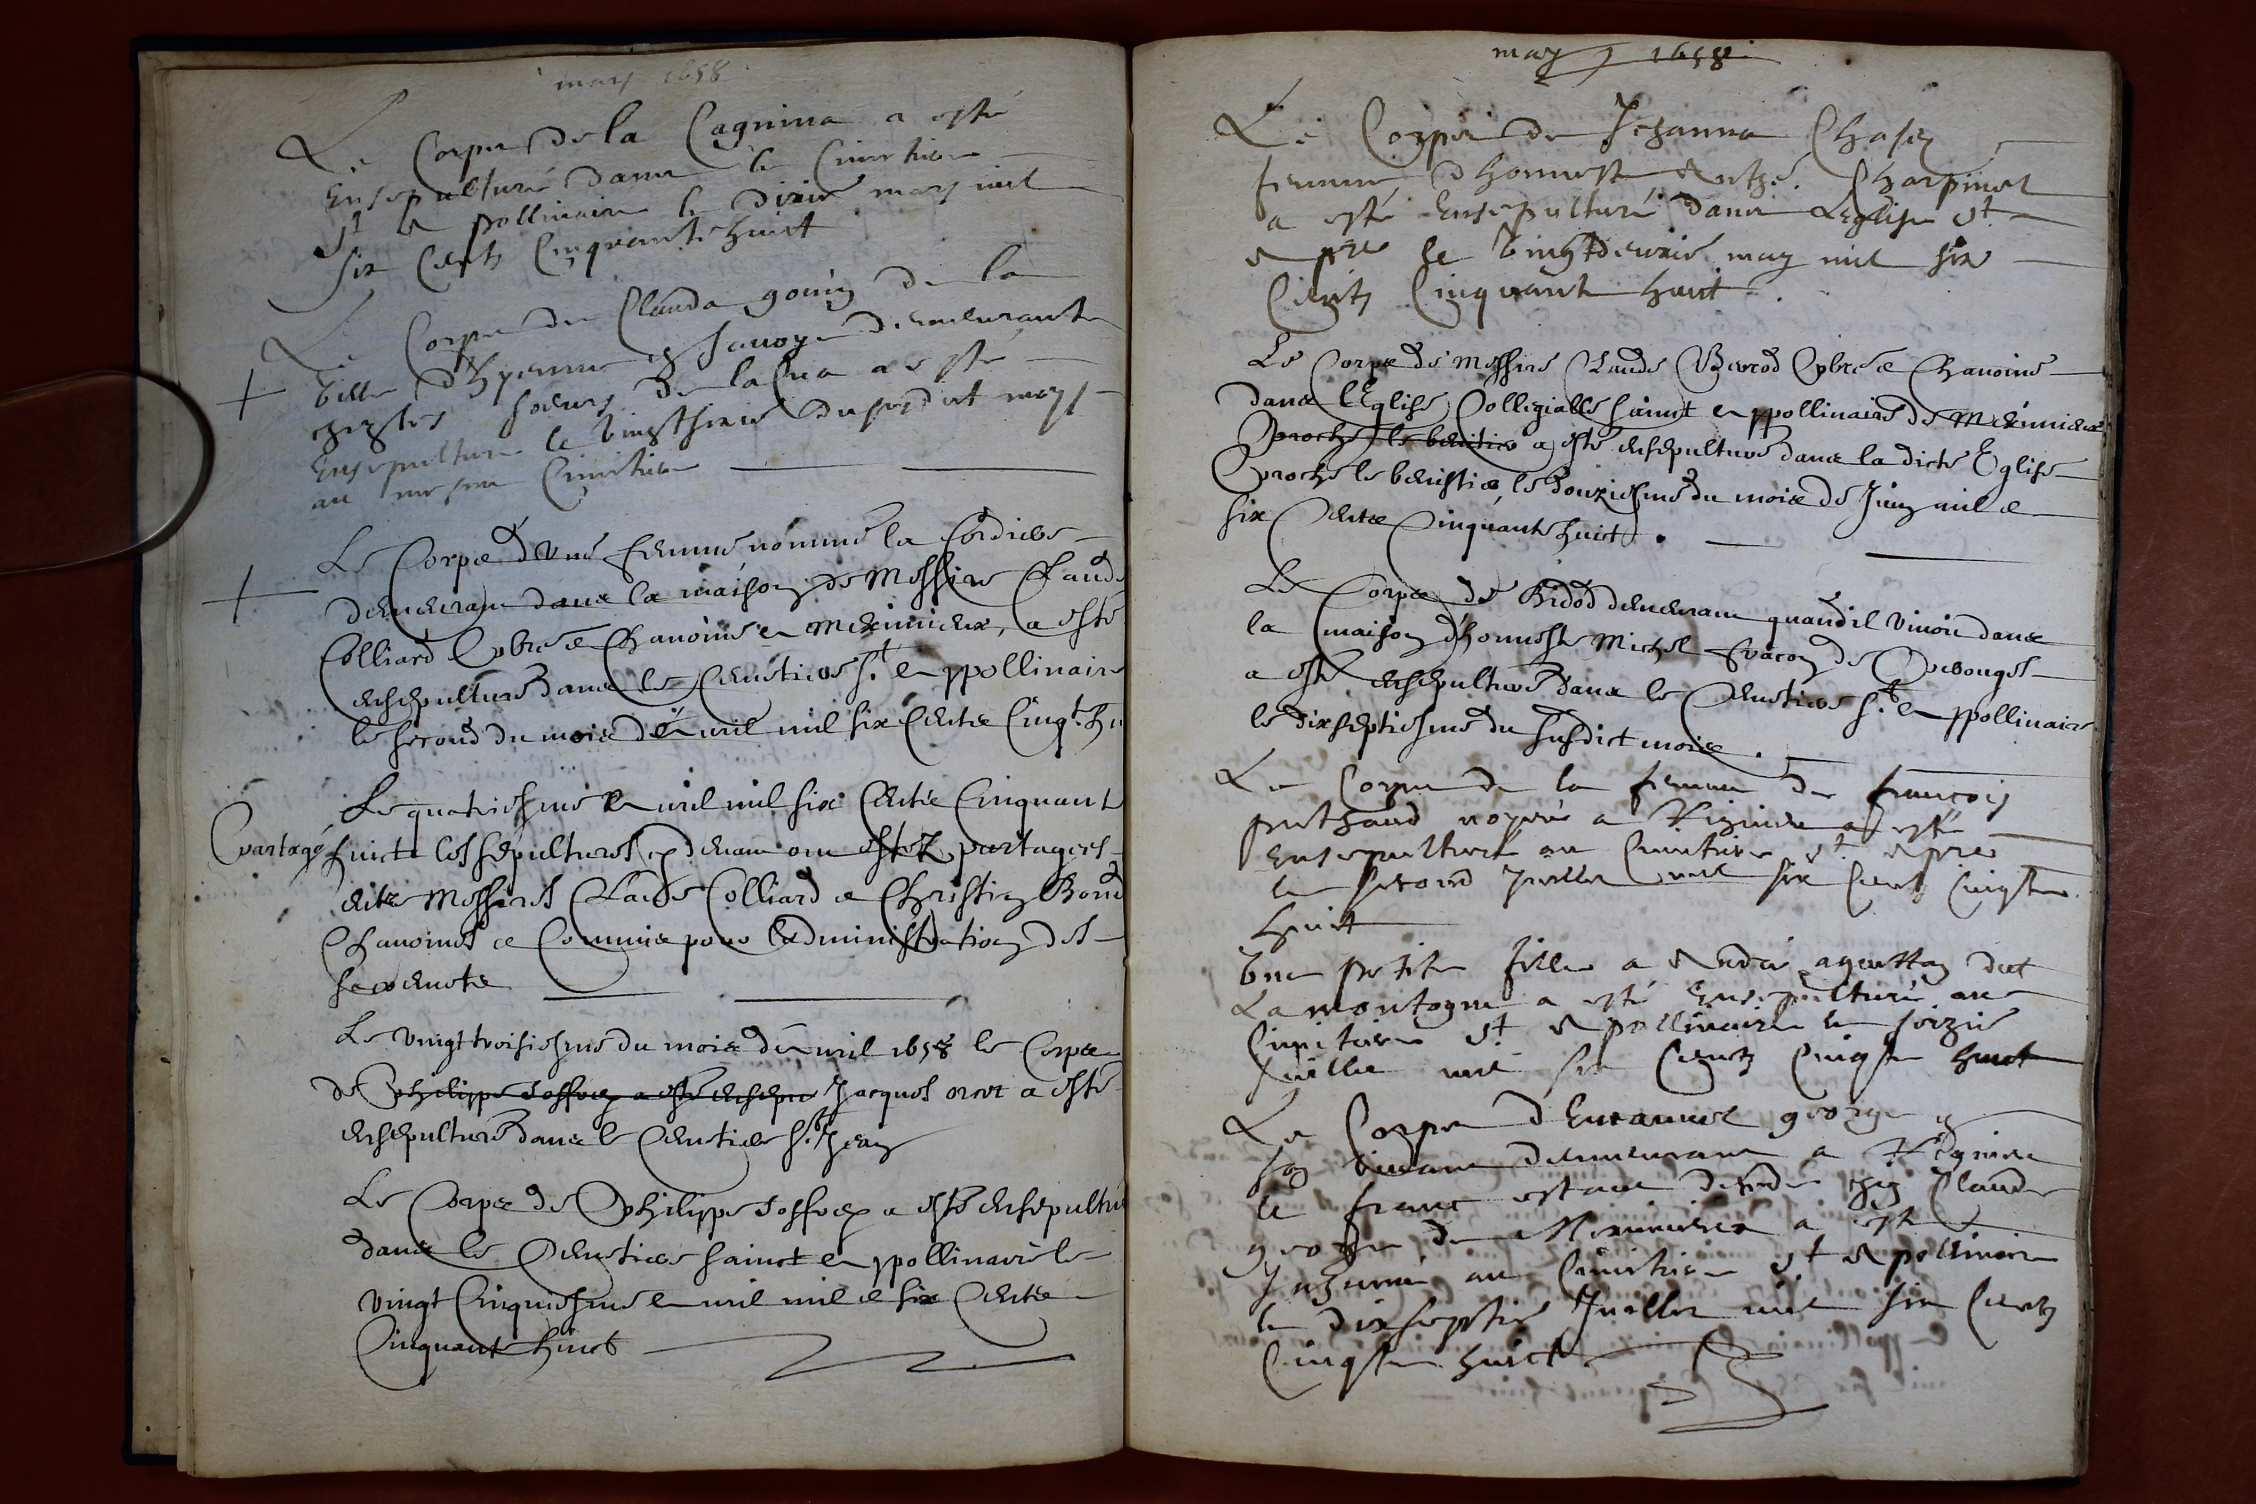 mars 1658
Le Corps de la Cagnina a esté
Ensepulturé dans le Cimetiere
St Appollinaire le dixie mars mil
six Cents Cinquante huict
Le Corps de Clauda gouin de la
Ville d'hyenne en Savoye demeurante
chez les soeurs de la a esté
Ensepulturé le vingtsixie du susdict mars
au mesme Cimetiere
Le Corps d'une femme nommé la Cordiere
demeurant dans la maison de Messire Claude
Colliard pbre & Chanoine a Meximieux, a esté
ensepulturé dans le Cemetiere St Appollinaire
le second du mois d'Avril mil six Cents Cinqte hu
Le quatriesme Avril mil six Cents Cinquante
partagé huicts les sepultures cy devant ont estez partagees
entre Messires Claude Colliard & Christin Bond
Chanoines & Commis pour l'Administration des
Sacrements
Le vingt troisiesme du mois d'Avril 1658 le Corps
de Philippe Joffrey a esté ensepu Jacques orset a esté
ensepulturé dans le Cemetiere St Jean
Le Corps de Philippe Joffrey a esté ensepultu
dans le Cemetiere sainct Appollinaire le
vingt Cinquiesme Avril mil & six Cents
Cinquante huict
may 1658
Le Corps de Jehanna Chasey
femme d'honneste Charpinel
a esté Ensepulturé dans L'eglise St
Apre le vingtdeuxie may mil six
Cents Cinquante huict.
Le Corps de Messire Claude Berrod pbre & Chanoine
dans l'Eglise Collegialle sainct Appollinaire de Meximieux
Proche le benitier a esté ensepulturé dans la dicte Eglise
Proche le benistier, le douziesme du mois de Juin mil &
six Cents Cinquante huict.
Le Corps de Bidod demeurant quand il vivoit dans
la maison d'honneste Michel de Perouges
a esté ensepulturé dans le Cemetiere St Appollinaire
le dixseptiesme du susdict mois.
Le Corps de la femme de françois
prethaud noyée a Viginieu a esté
Ensepulturé au Cimetiere St Apre
le second Juillet mil six Cents Cinqte
huict
Une petite fille a André dict
La montagne a esté Ensepulturé au
Cimetiere St Appollinaire le seizie
Juillet mil six Cents Cinqte huict
Le Corps d'Emanuel george en
son vivant demeurant a
le franc estant decedé chez Claude
george de Meximieux a esté
Inhumé au Cimetiere St Appollinaire
le dixseptie Juillet mil six Cents
Cinqte huict